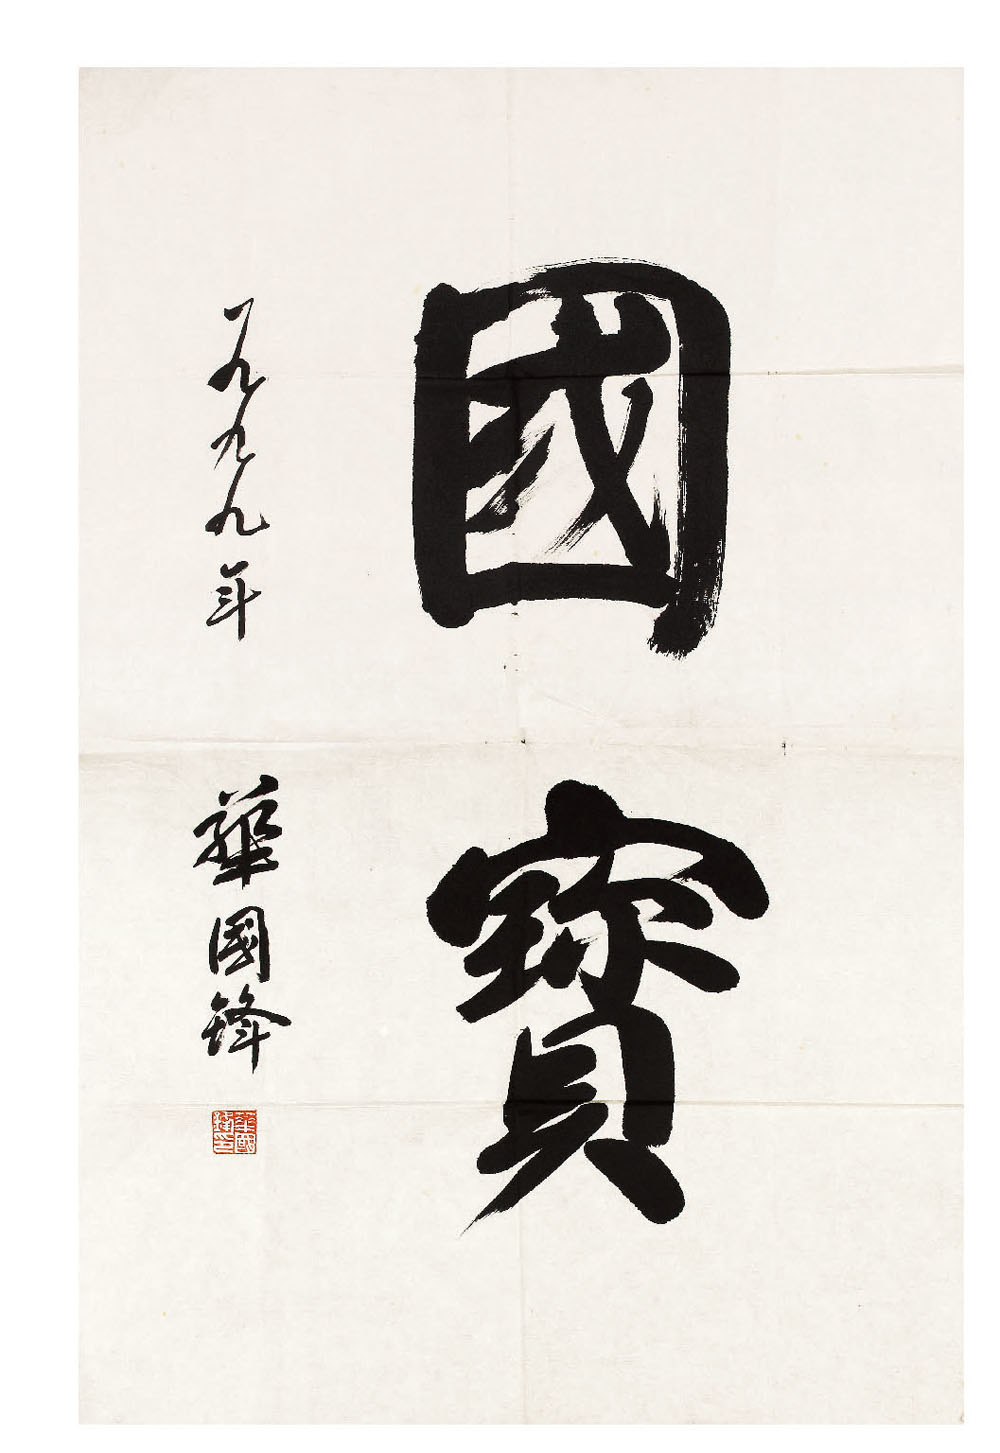 國寶
一九九九年
華國鋒
華國鋒印